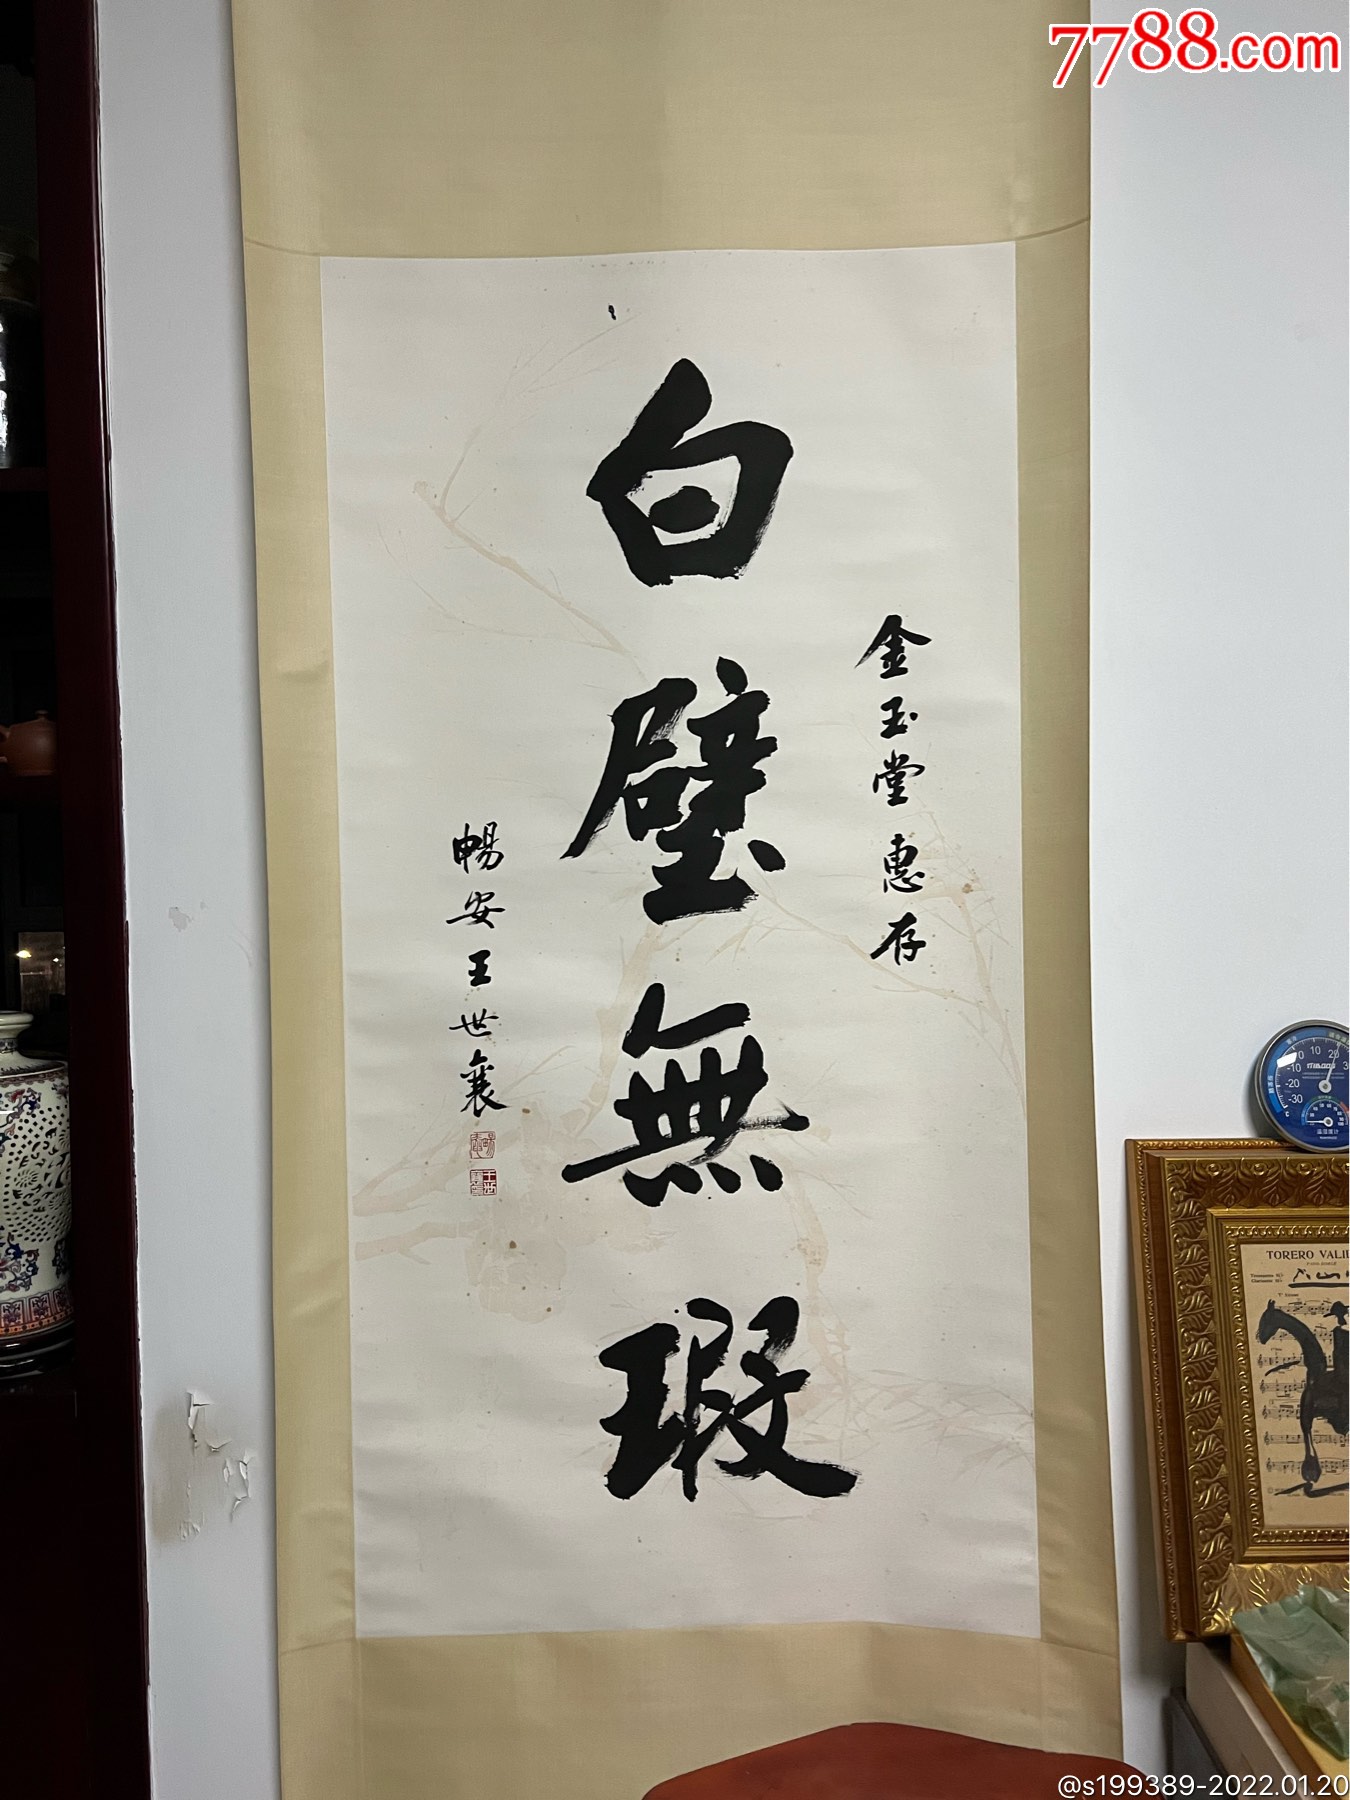 7788.com
金玉堂惠存
白璧無瑕
暢安王世襄
TORERO VALI
@s199389-2022.01.20